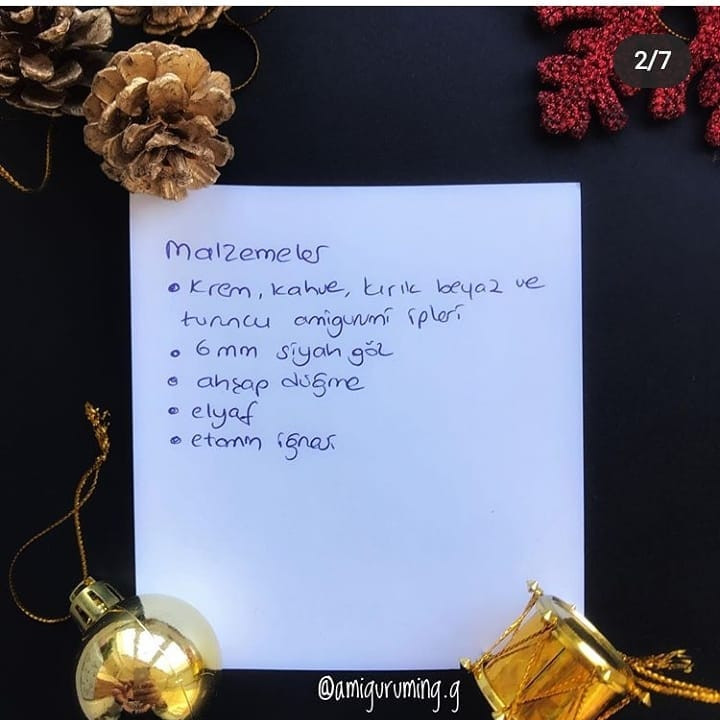 2/7
Malzemeler
• Krem, kahve, kırık beyaz ve
turuncu amigurumi ipleri
• 6 mm siyah göz
• ahşap düğme
• elyaf
• etamin iğnesi
@amiguruming.g